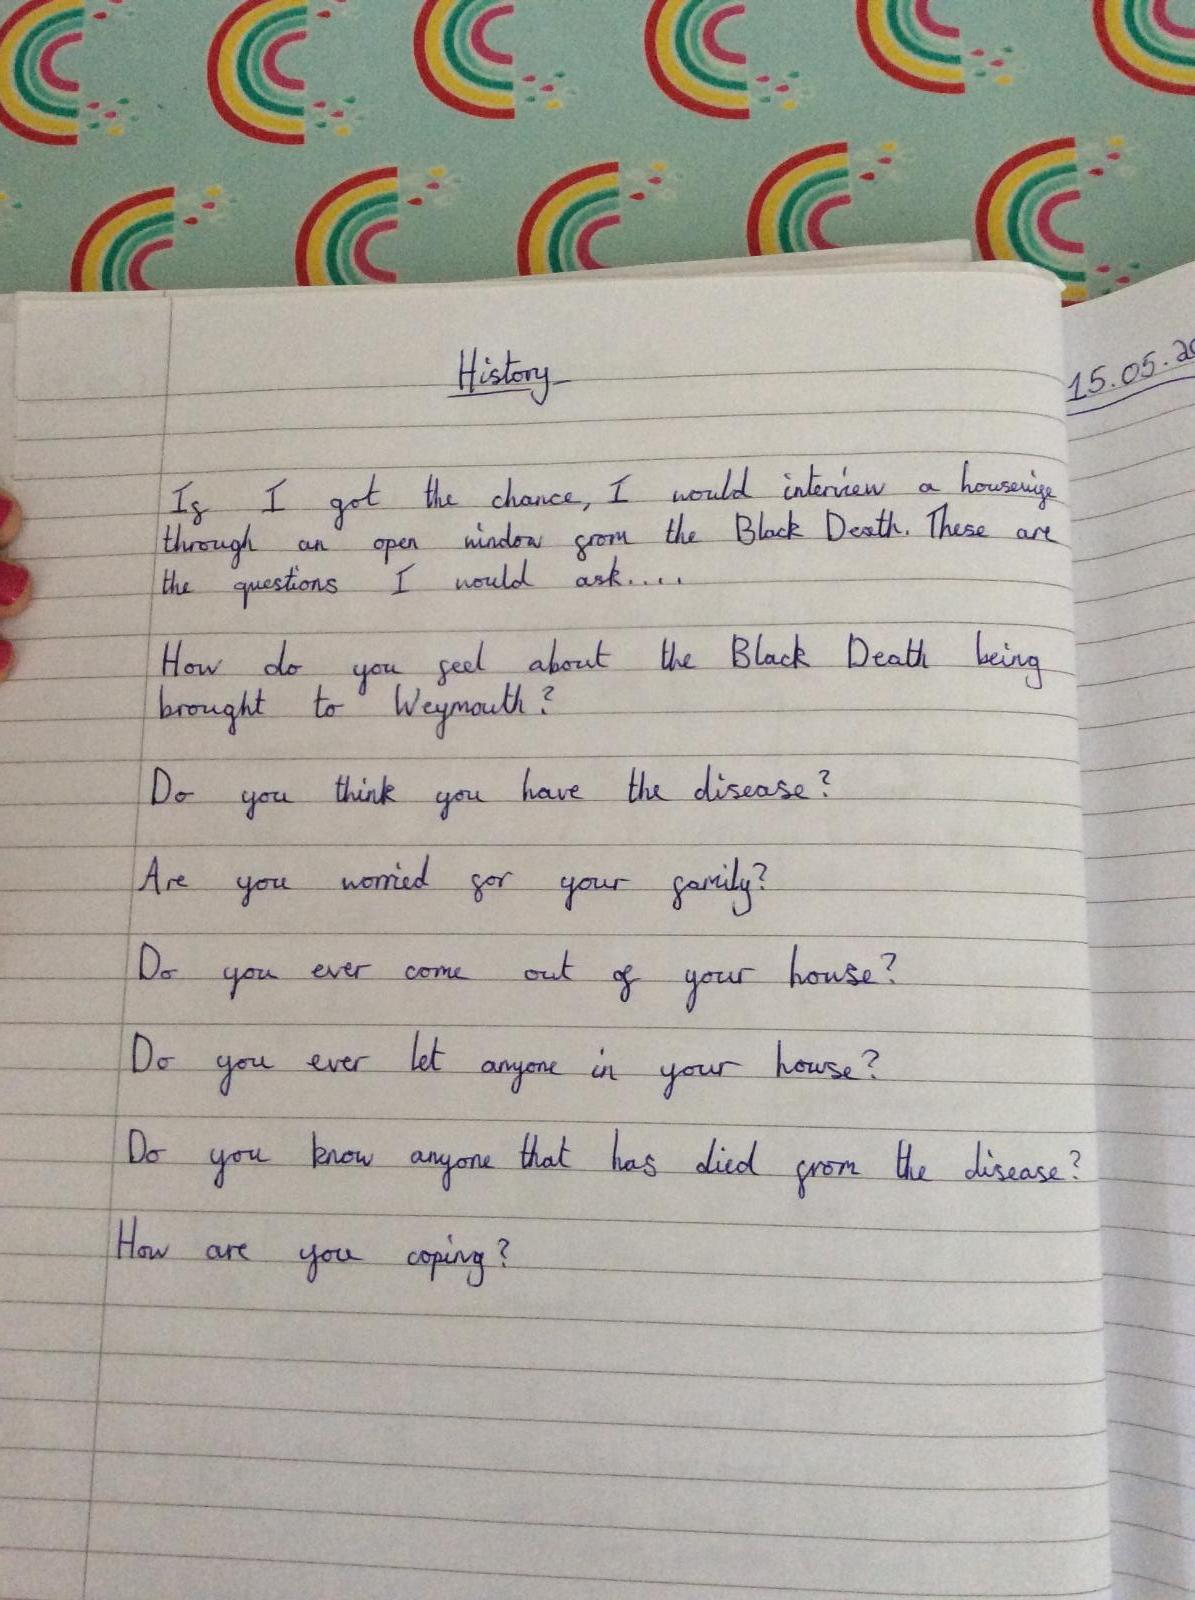 History
15.05.20
If I got the chance, I would interview a housewife
through an open window from the Black Death. These are
the questions I would ask....
How do you feel about the Black Death being
brought to Weymouth?
Do you think you have the disease?
Are you worried for your family?
Do you ever come out of your house?
Do you ever let anyone in your house?
Do you know anyone that has died from the disease?
How are you coping?